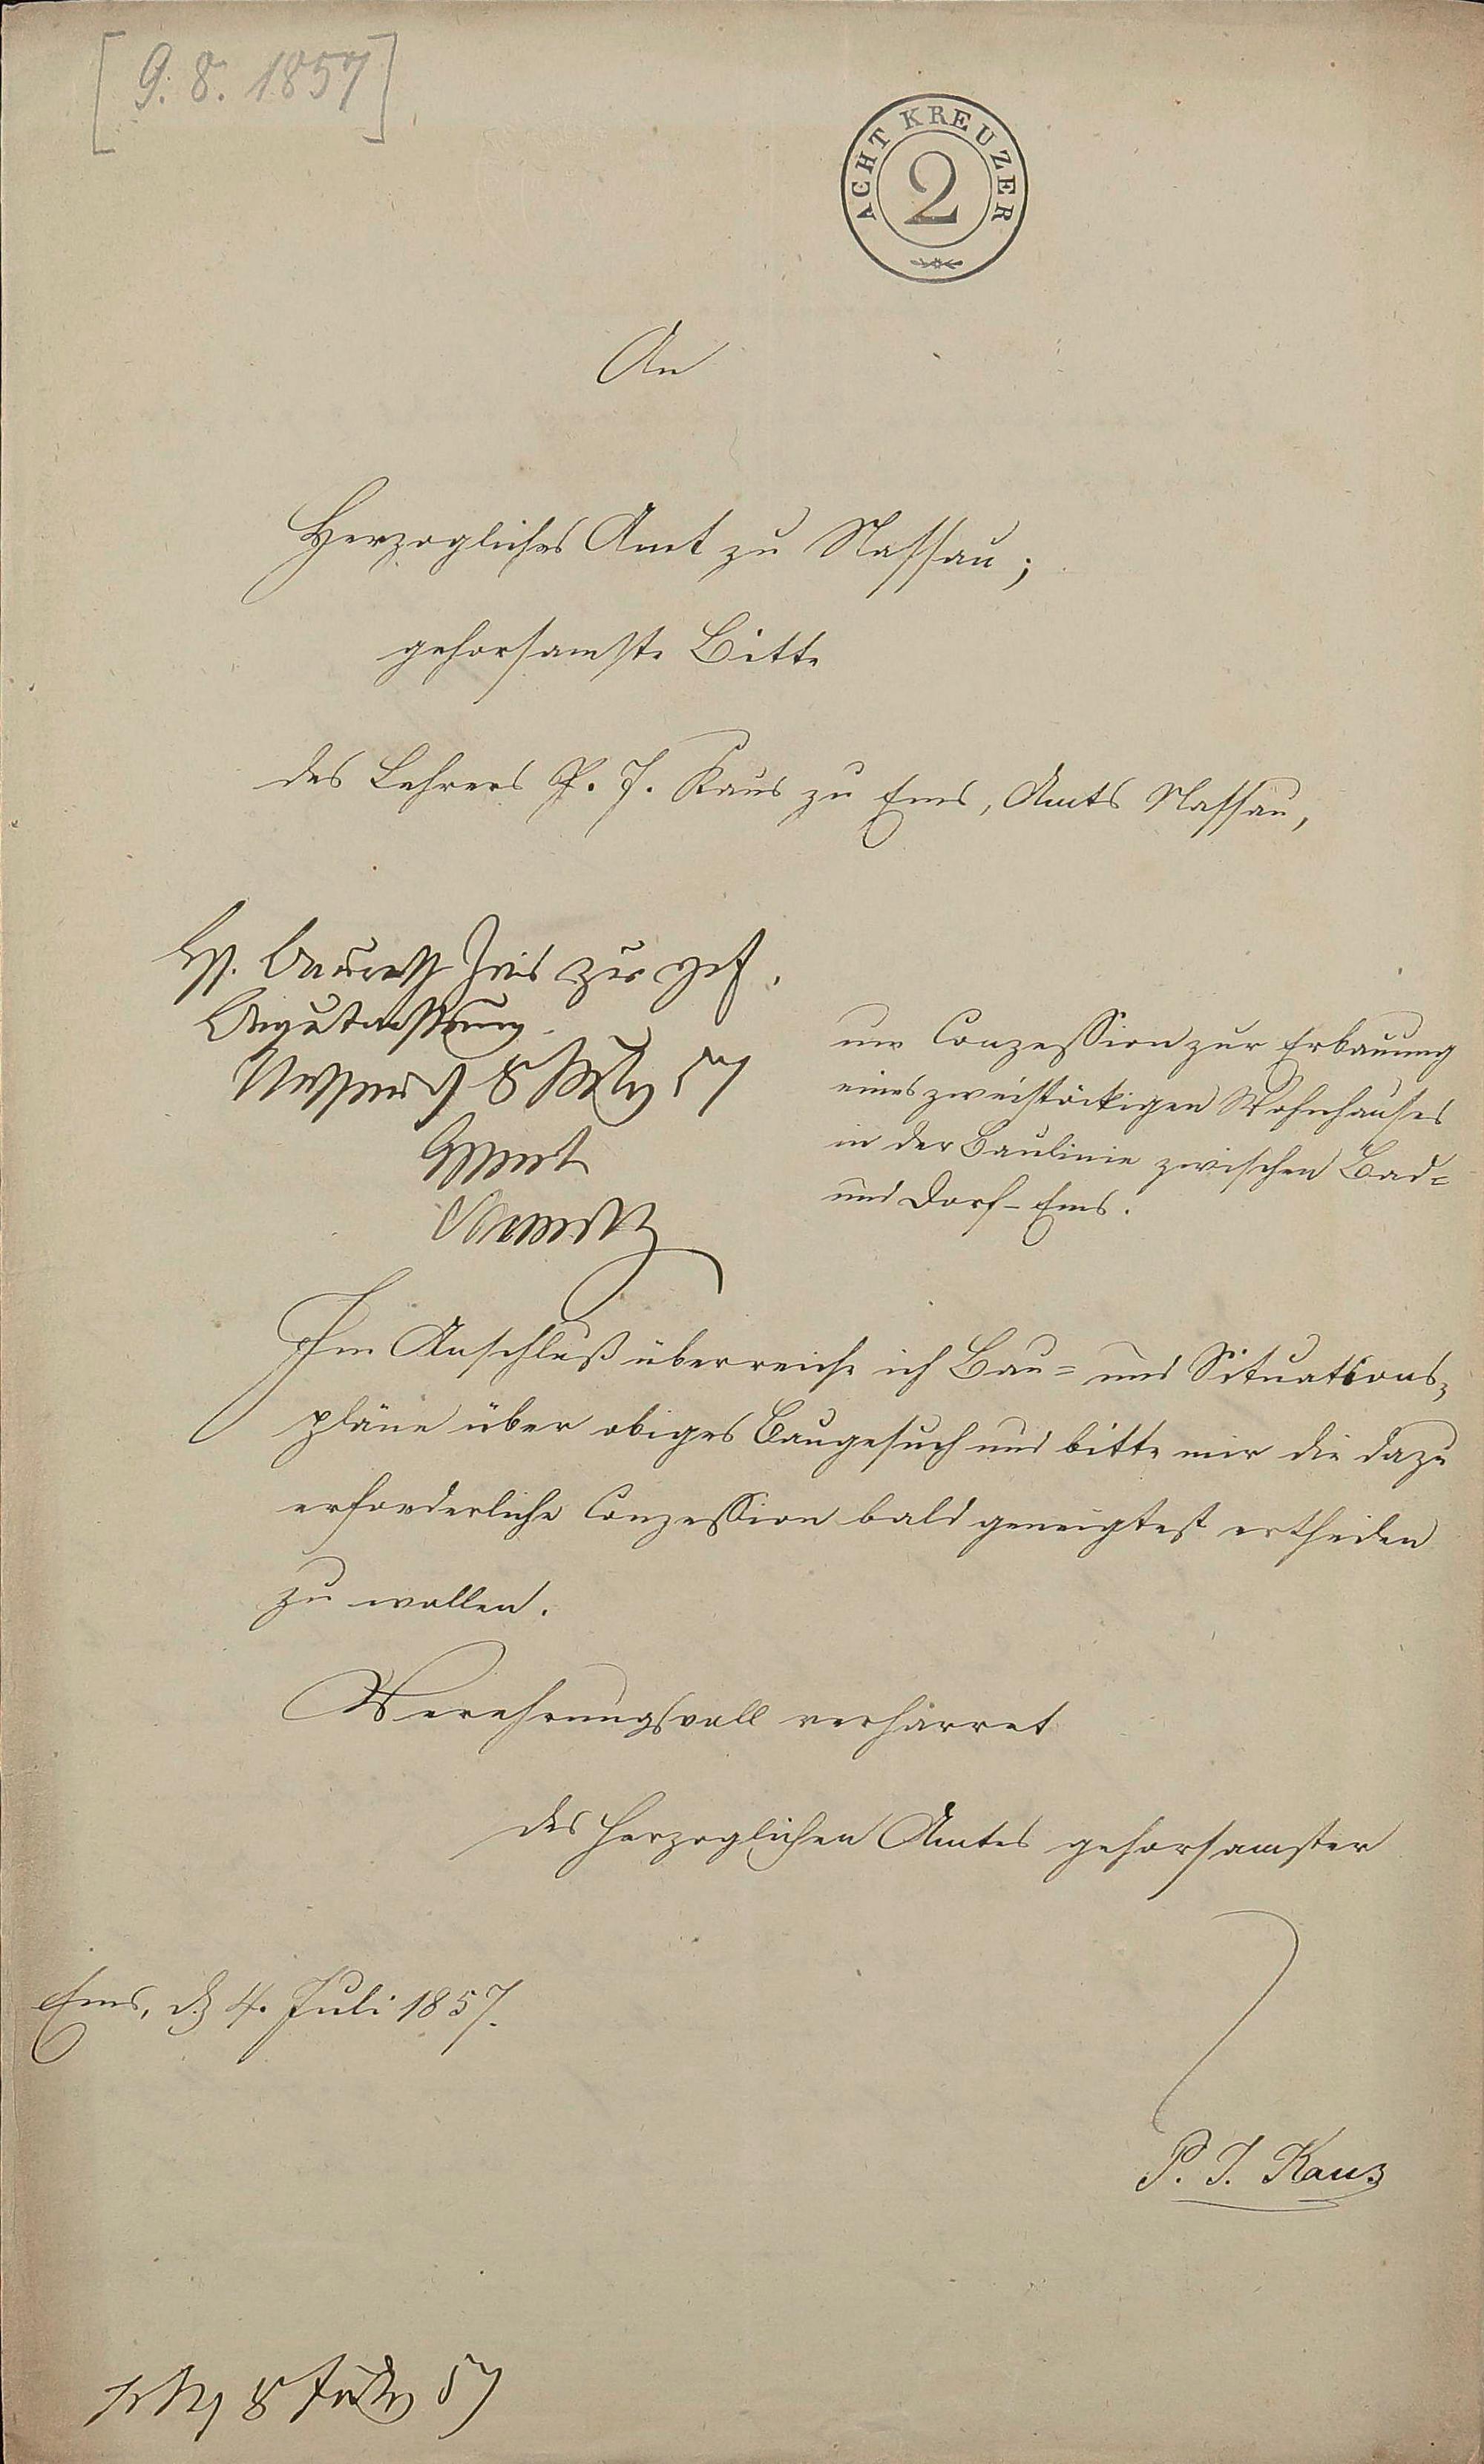 [9. 8. 1857]
ACHT KREUZER
2
An
Herzogliches Amt zu Nassau;
gehorsamste Bitte
des Lehrers P. J. Kaus zu Ems, Amts Nassau,
H. Baurath zur gef.
Begutachtung.
Nassau 8 July 57
Amt
um Conzession zur Erbauung
eines zweistöckigen Wohnhauses
in der Baulinie zwischen Bad-
und Dorf-Ems.
Im Anschluß überreiche ich Bau- und Situations-
pläne über obiges Baugesuch und bitte mir die dazu
erforderliche Conzession bald geneigtest ertheilen
zu wollen.
Verehrungsvoll verharret
des Herzoglichen Amtes gehorsamster
Ems, d. 4. Juli 1857.
P. J. Kaus
8 July 57